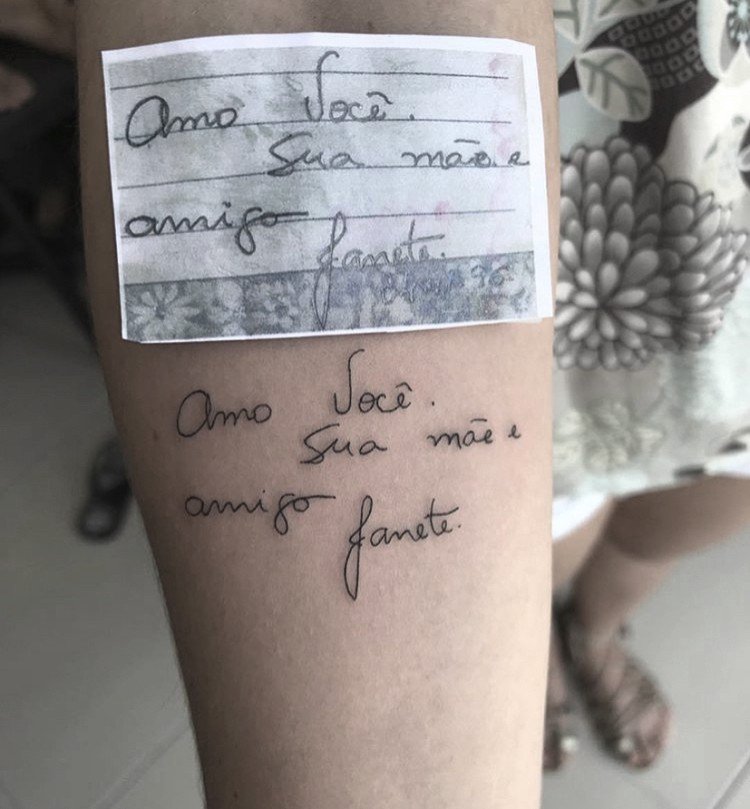 Amo Você.
Sua mãe e
amigo Janete.
Amo Você.
Sua mãe e
amigo Janete.